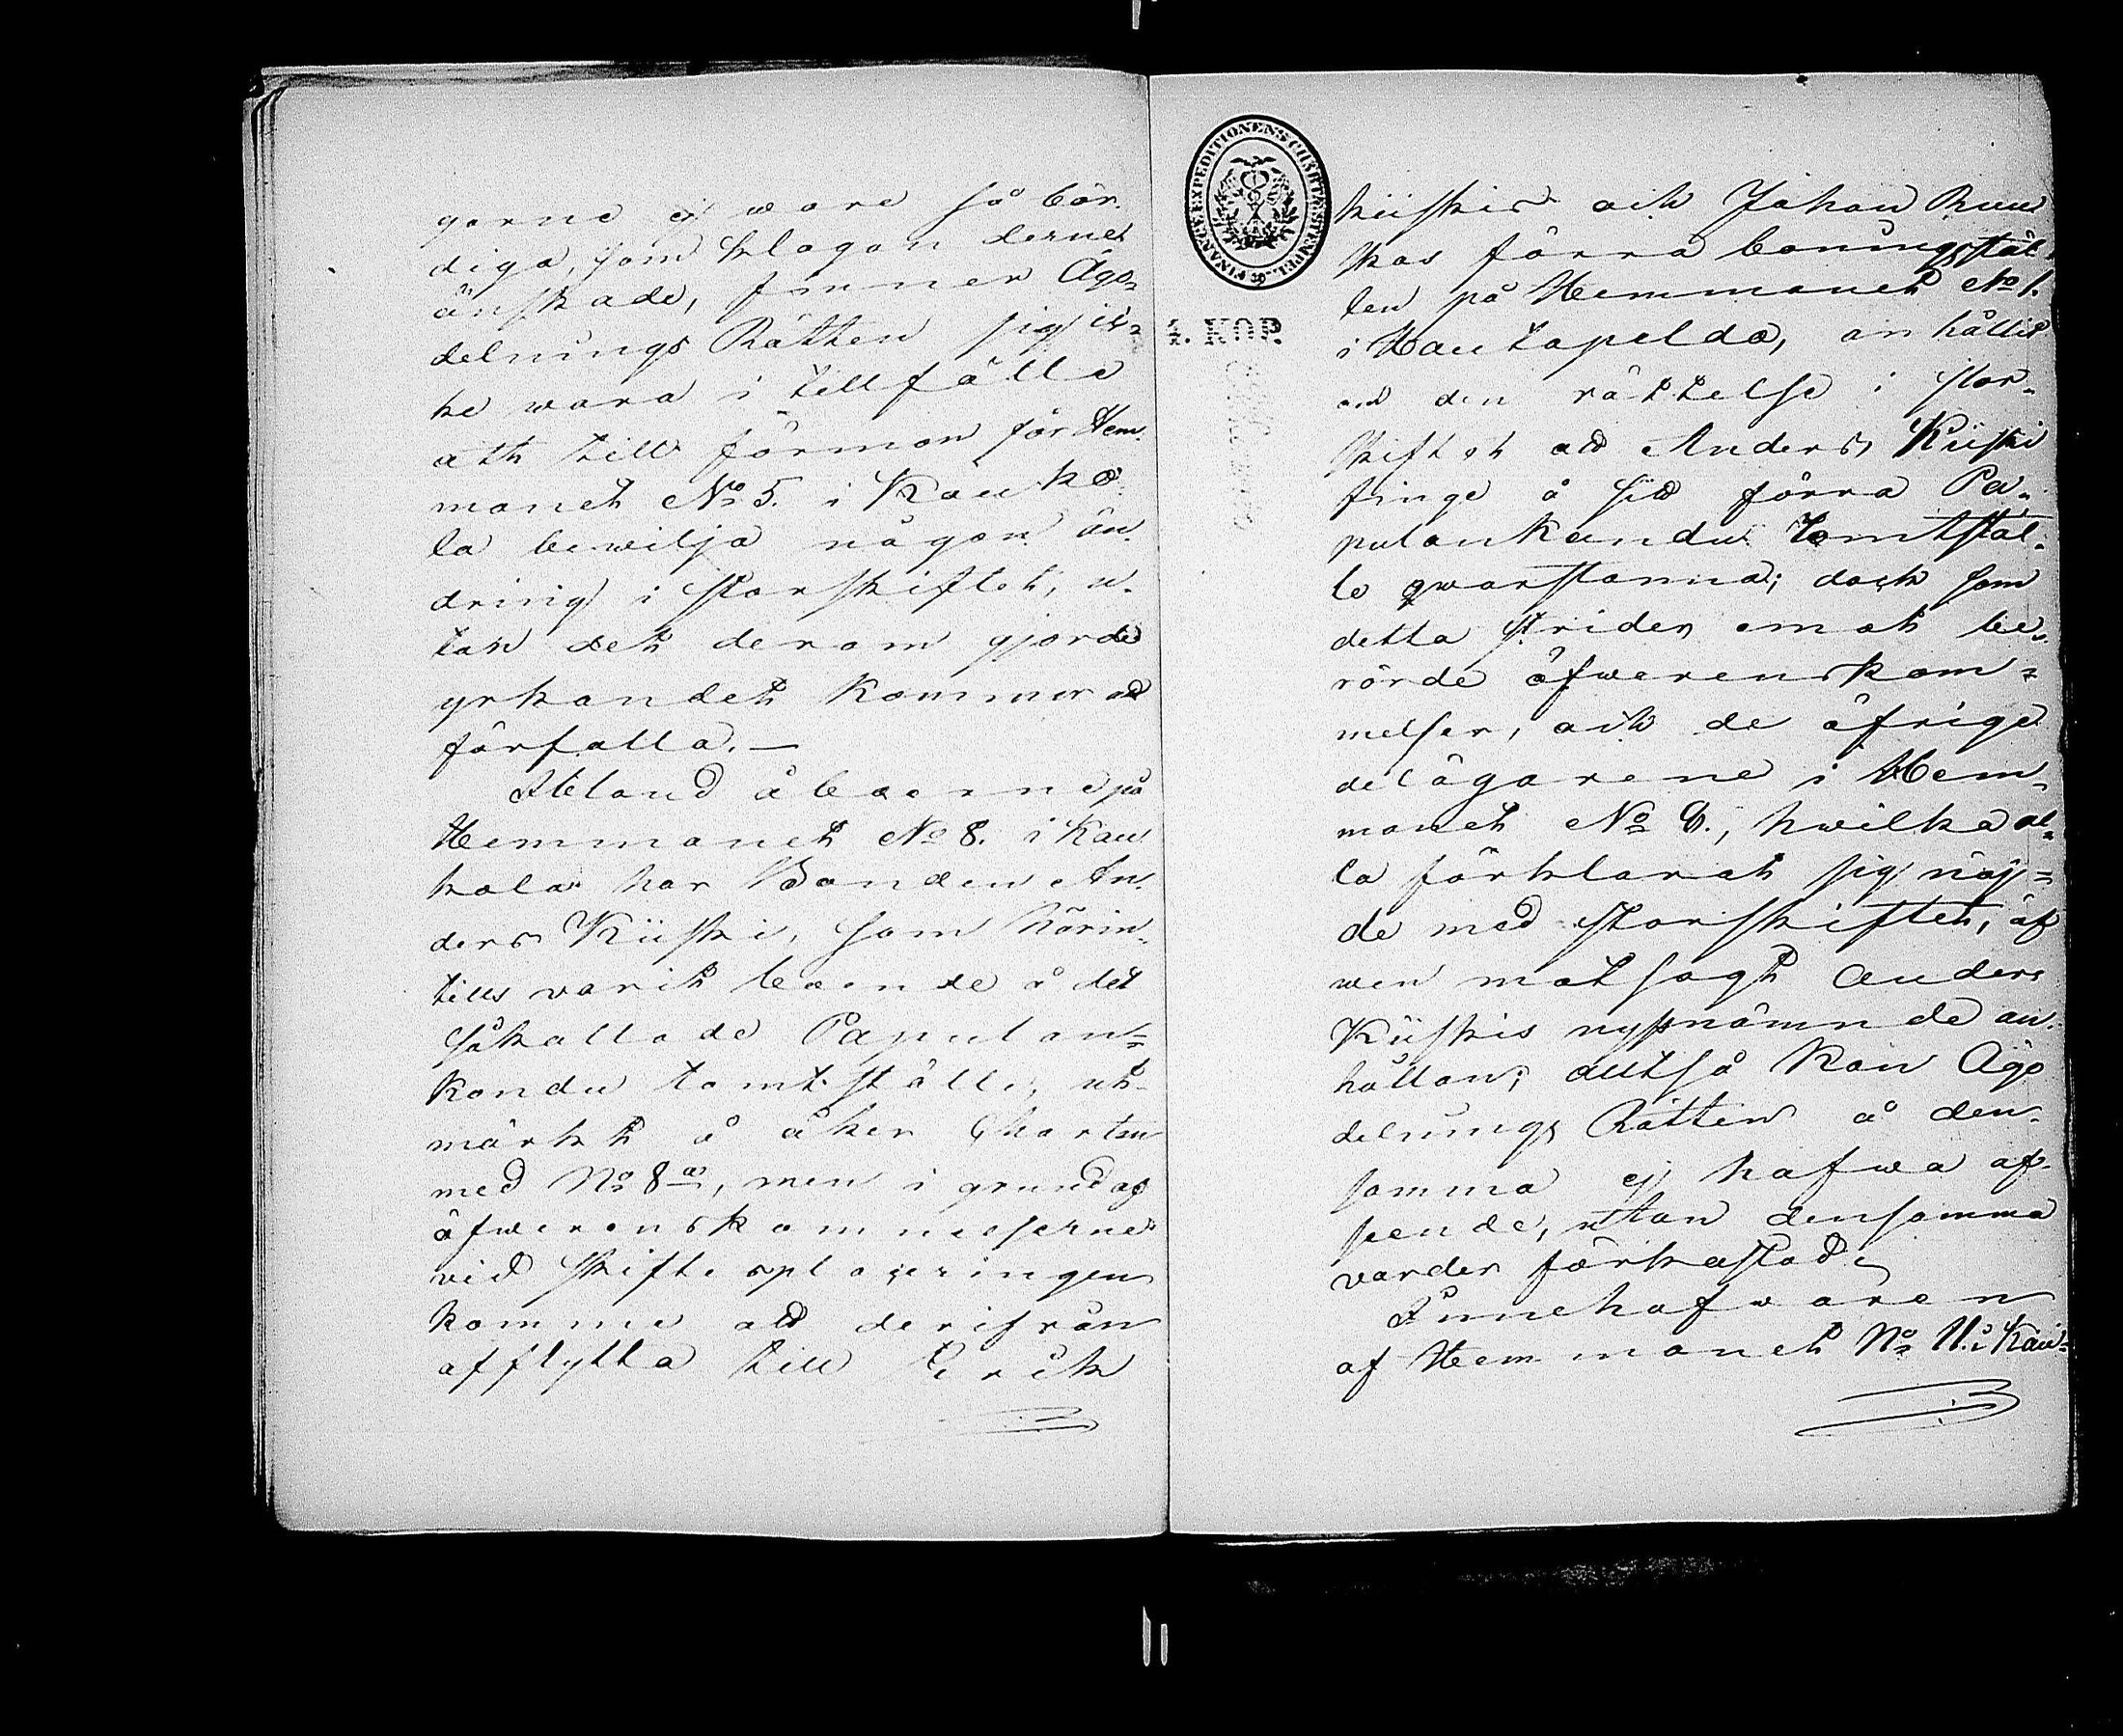 garne ej wore så bör-
diga, som klagandernes
önskade, finner Ägo-
delnings Rätten sig ic-
ke wara i tillfälle
att till förmon för Hem-
manet No 5. i Kauko-
la bewilja någon än-
dring i storskiftet, u-
tan det derom gjorde
yrkandet kommer att
förfalla.—
Ibland åboerne på
Hemmanet No 8. i Kau
kola har Bonden An-
ders Kiiski, som härin-
tills varit boende å det
såkallade Papulan-
kondu tomtställe, ut-
märkt å åker Chartan
med No 8 a, men i grund af
öfwerenskommelserne
vid skiftesplageringen
komme att derifrån
afflytta till Erik
Kiiskis och Johan Ruu
kas förra boningsstäl-
len på Hemmanet No 1.
i Hautapelda, anhållit
om den rättelse i stor-
skiftet att Anders Kiiski
finge å sitt förra Pa-
pulankundu Tomtstäl-
le qwarstanna; dock som
detta strider emot be-
rörde öfwerenskom-
melser, och de öfrige
delägarene i Hem-
manet No 8., hwilka al-
la förklarat sig nöj-
de med storskiftet, äf
wen motsagt Anders
Kiiskis nyssnämnde an-
hållan; alltså kan Ägo
delnings Rätten å den-
samma ej hafwa af-
seende, utan densamma
varder förkastad.
Innehafwaren
af Hemmanet No 11. i Kau-
FINANCE EXPEDITIONENS CHARTÆ STEMPEL
4. KOP.